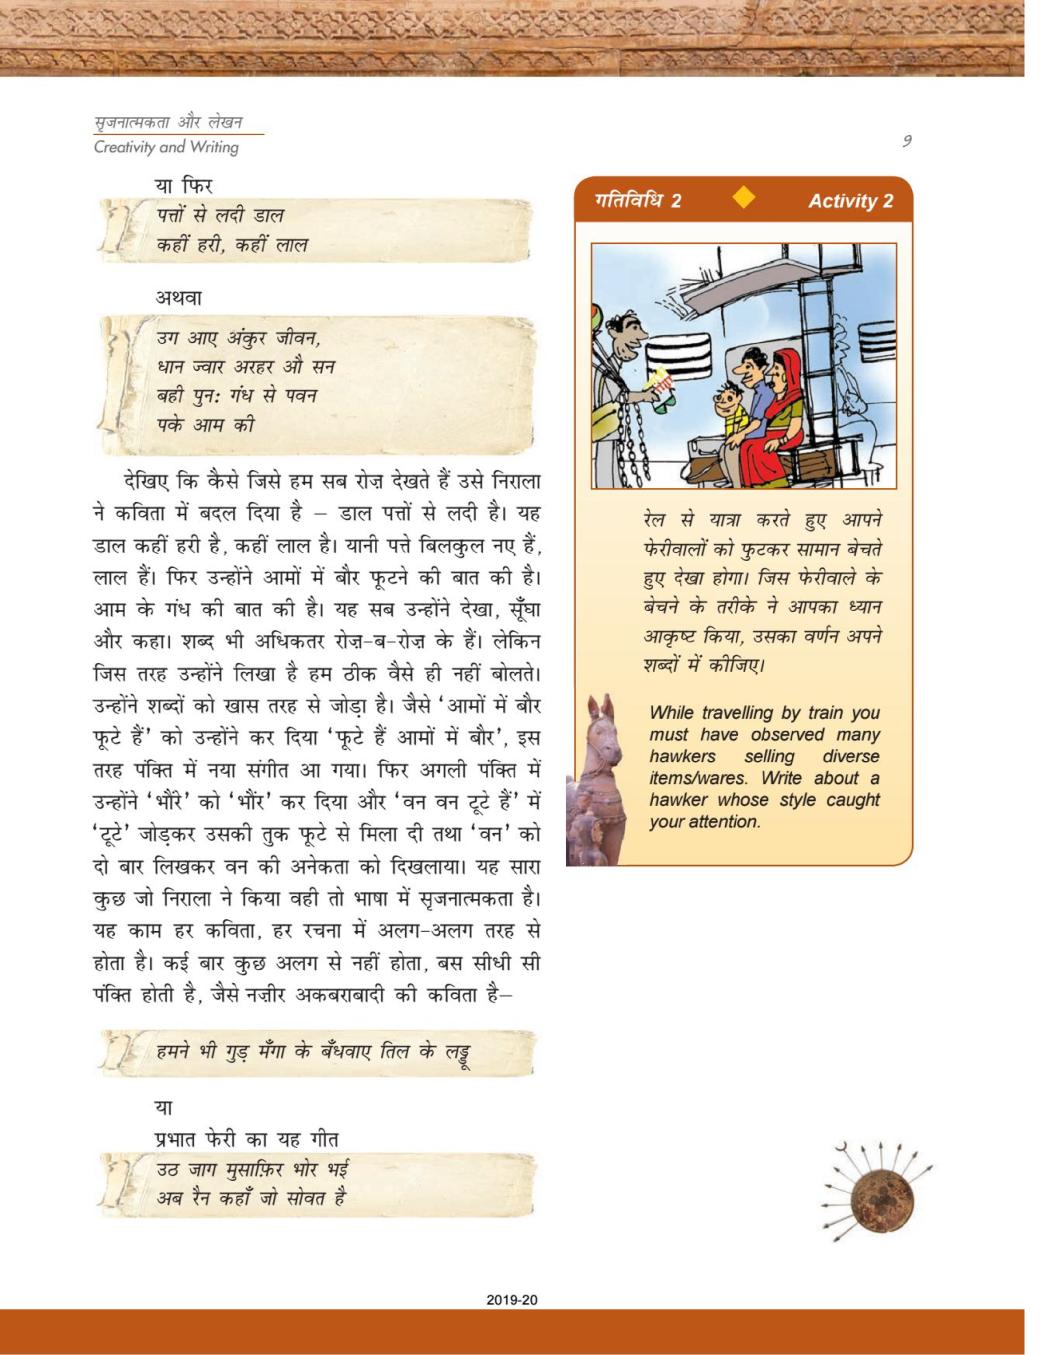 सृजनात्मकता और लेखन
Creativity and Writing
9
या फिर
पत्तों से लदी डाल
कहीं हरी, कहीं लाल
अथवा
उग आए अंकुर जीवन,
धान ज्वार अरहर औ सन
बही पुन: गंध से पवन
पके आम की
देखिए कि कैसे जिसे हम सब रोज़ देखते हैं उसे निराला
ने कविता में बदल दिया है – डाल पत्तों से लदी है। यह
डाल कहीं हरी है, कहीं लाल है। यानी पत्ते बिलकुल नए हैं,
लाल हैं। फिर उन्होंने आमों में बौर फूटने की बात की है।
आम के गंध की बात की है। यह सब उन्होंने देखा, सूँघा
और कहा। शब्द भी अधिकतर रोज़-ब-रोज़ के हैं। लेकिन
जिस तरह उन्होंने लिखा है हम ठीक वैसे ही नहीं बोलते।
उन्होंने शब्दों को खास तरह से जोड़ा है। जैसे ‘आमों में बौर
फूटे हैं’ को उन्होंने कर दिया ‘फूटे हैं आमों में बौर’, इस
तरह पंक्ति में नया संगीत आ गया। फिर अगली पंक्ति में
उन्होंने ‘भौंरे’ को ‘भौंर’ कर दिया और ‘वन वन टूटे हैं’ में
‘टूटे’ जोड़कर उसकी तुक फूटे से मिला दी तथा ‘वन’ को
दो बार लिखकर वन की अनेकता को दिखलाया। यह सारा
कुछ जो निराला ने किया वही तो भाषा में सृजनात्मकता है।
यह काम हर कविता, हर रचना में अलग-अलग तरह से
होता है। कई बार कुछ अलग से नहीं होता, बस सीधी सी
पंक्ति होती है, जैसे नज़ीर अकबराबादी की कविता है–
हमने भी गुड़ मँगा के बँधवाए तिल के लड्डू
या
प्रभात फेरी का यह गीत
उठ जाग मुसाफ़िर भोर भई
अब रैन कहाँ जो सोवत है
गतिविधि 2
Activity 2
रेल से यात्रा करते हुए आपने
फेरीवालों को फुटकर सामान बेचते
हुए देखा होगा। जिस फेरीवाले के
बेचने के तरीके ने आपका ध्यान
आकृष्ट किया, उसका वर्णन अपने
शब्दों में कीजिए।
While travelling by train you
must have observed many
hawkers selling diverse
items/wares. Write about a
hawker whose style caught
your attention.
2019-20